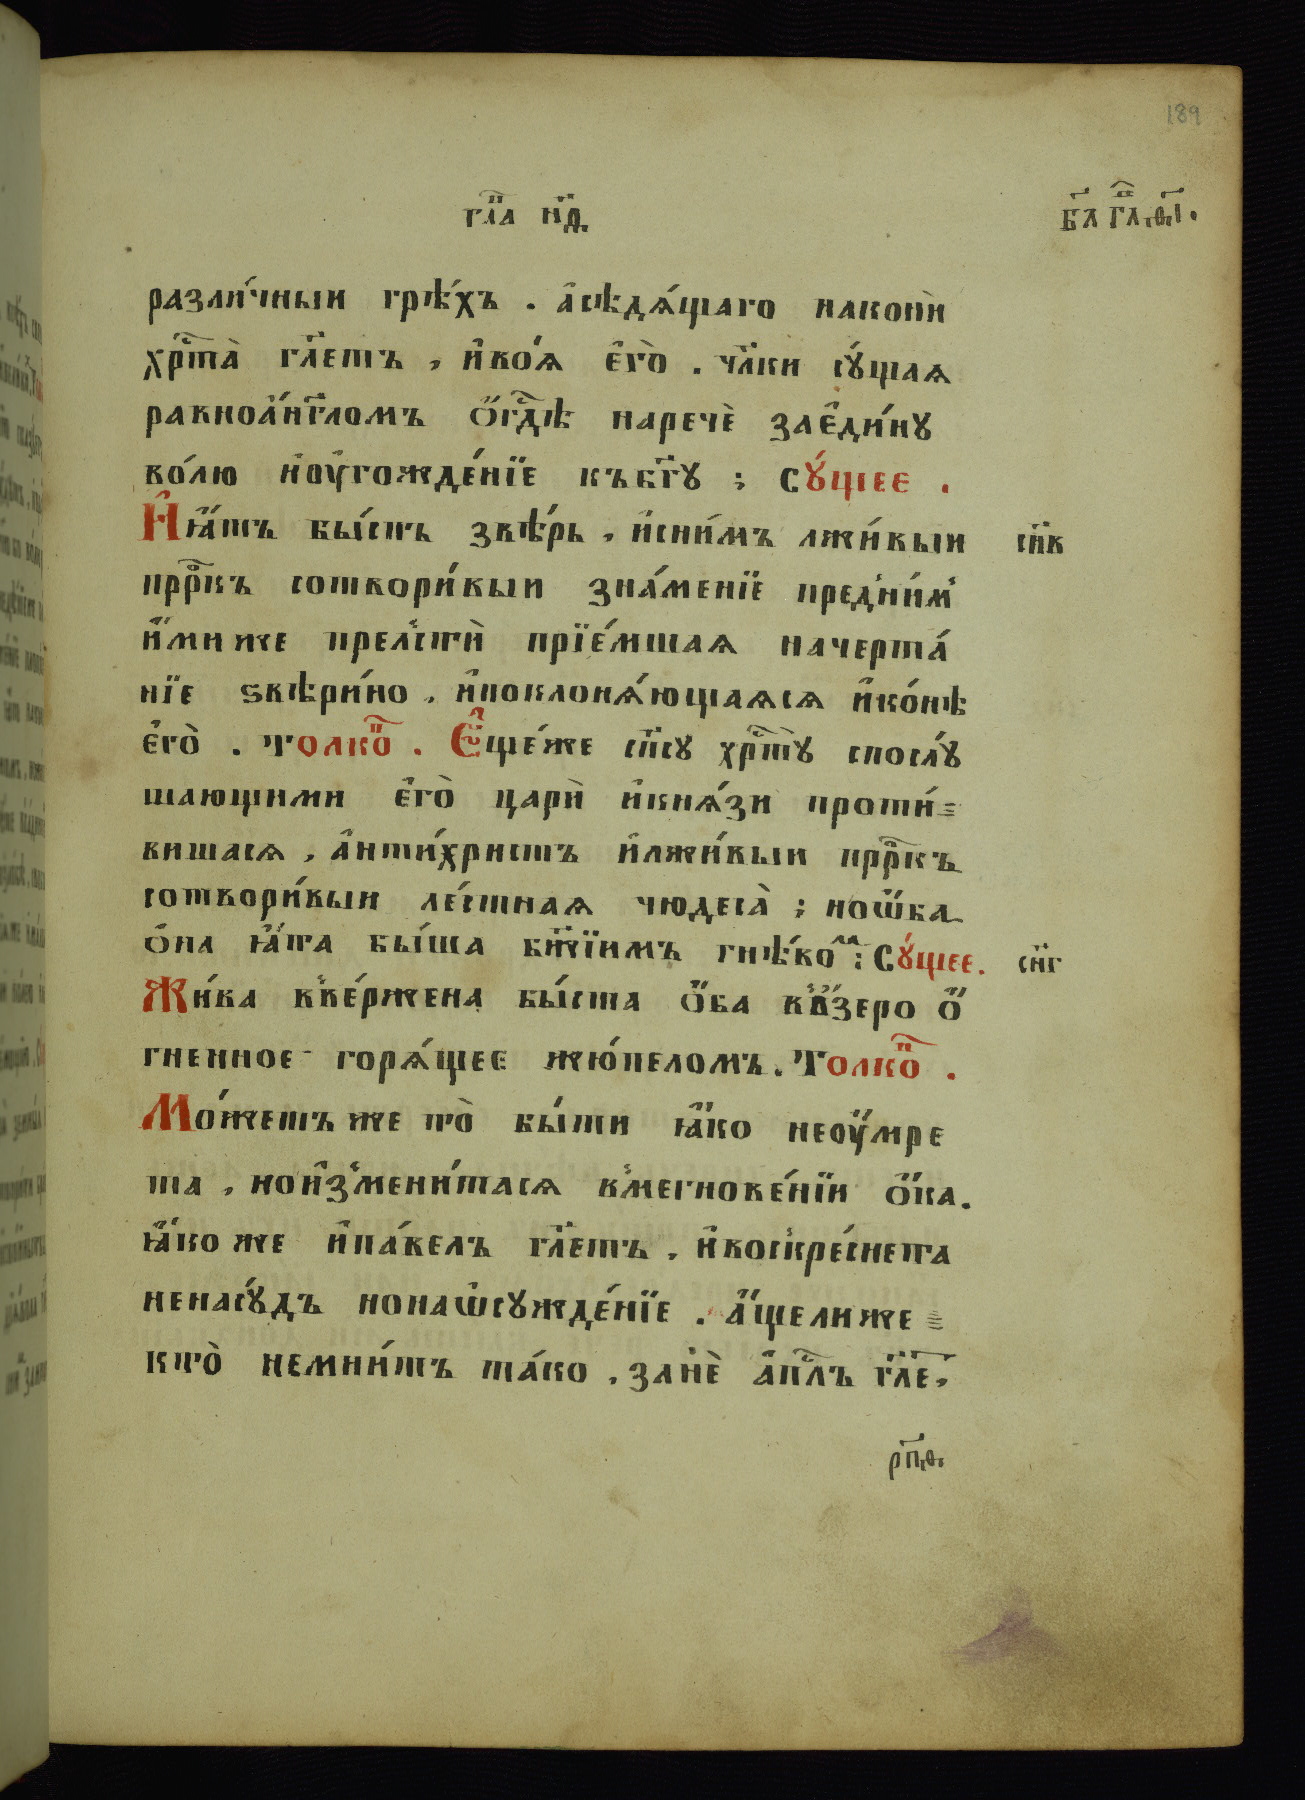 189
гл҃а н҃д
б҃л гл҃а ѳ҃і.
разли́чныи грѣ́хъ . а҆сѣдѧ́щаго накони̂
хрⷭ҇та̀ гл҃етъ , и҆воѧ̀ є҆го̀ . чл҃ки сꙋ́щаѧ
равноа́нг҃ломъ ѻ҆гдⷭ҇ѣ наречѐ заедиⷩ҇ꙋ
во́лю и҆ѹгожде́нїе къбг҃ꙋ ; сꙋ́щее .
И҆ ꙗ҆́тъ бы́сть звѣ́рь , и҆сни́мъ лжи́выи сн҃в
прⷪ҇ркъ сотвори́выи зна́менїе предни́м
и҆́миже прельстѝ прїе́мшаѧ начерта́
нїе ѕвѣри́но , и҆поклонѧ́ющаѧсѧ и҆ко́нѣ
є҆го̀ . толкоⷡ҇ . Є҆ще́же сп҃сꙋ хрⷭ҇тꙋ̀ послꙋ́
шающими є҆го̀ царѝ и҆кнѧ́зи проти́
вишасѧ , а҆нти́христъ и҆лжи́выи прⷪ҇ркъ
сотвори́выи ле́стнаѧ чюдеса̀ ; ноѡ҆ба
ѻ҆на ꙗ҆́та бы́ша бж҃їимъ гнѣ́воⷨ ; Сꙋ́щее . сн҃г
Жи́ва вве́ржена бы́ста ѻ҆́ба вѻ҆́зеро ѻ҆́
гненное горѧ́щее жю́пеломъ . Толкоⷡ҇ .
Мо́жетъ же то̀ бы́ти ꙗ҆́ко неѹ҆́мре
та , нои҆змени́тасѧ вмегнове́нїи ѻ҆́ка .
ꙗ҆́коже и҆па́велъ гл҃етъ , и҆воскре́снета
ненасꙋ́дъ нонаѡ҆сꙋжде́нїе . а҆́щелиже
кто̀ немни́тъ та́ко , занѐ а҆пⷭ҇лъ гл҃е ,
рп҃ѳ